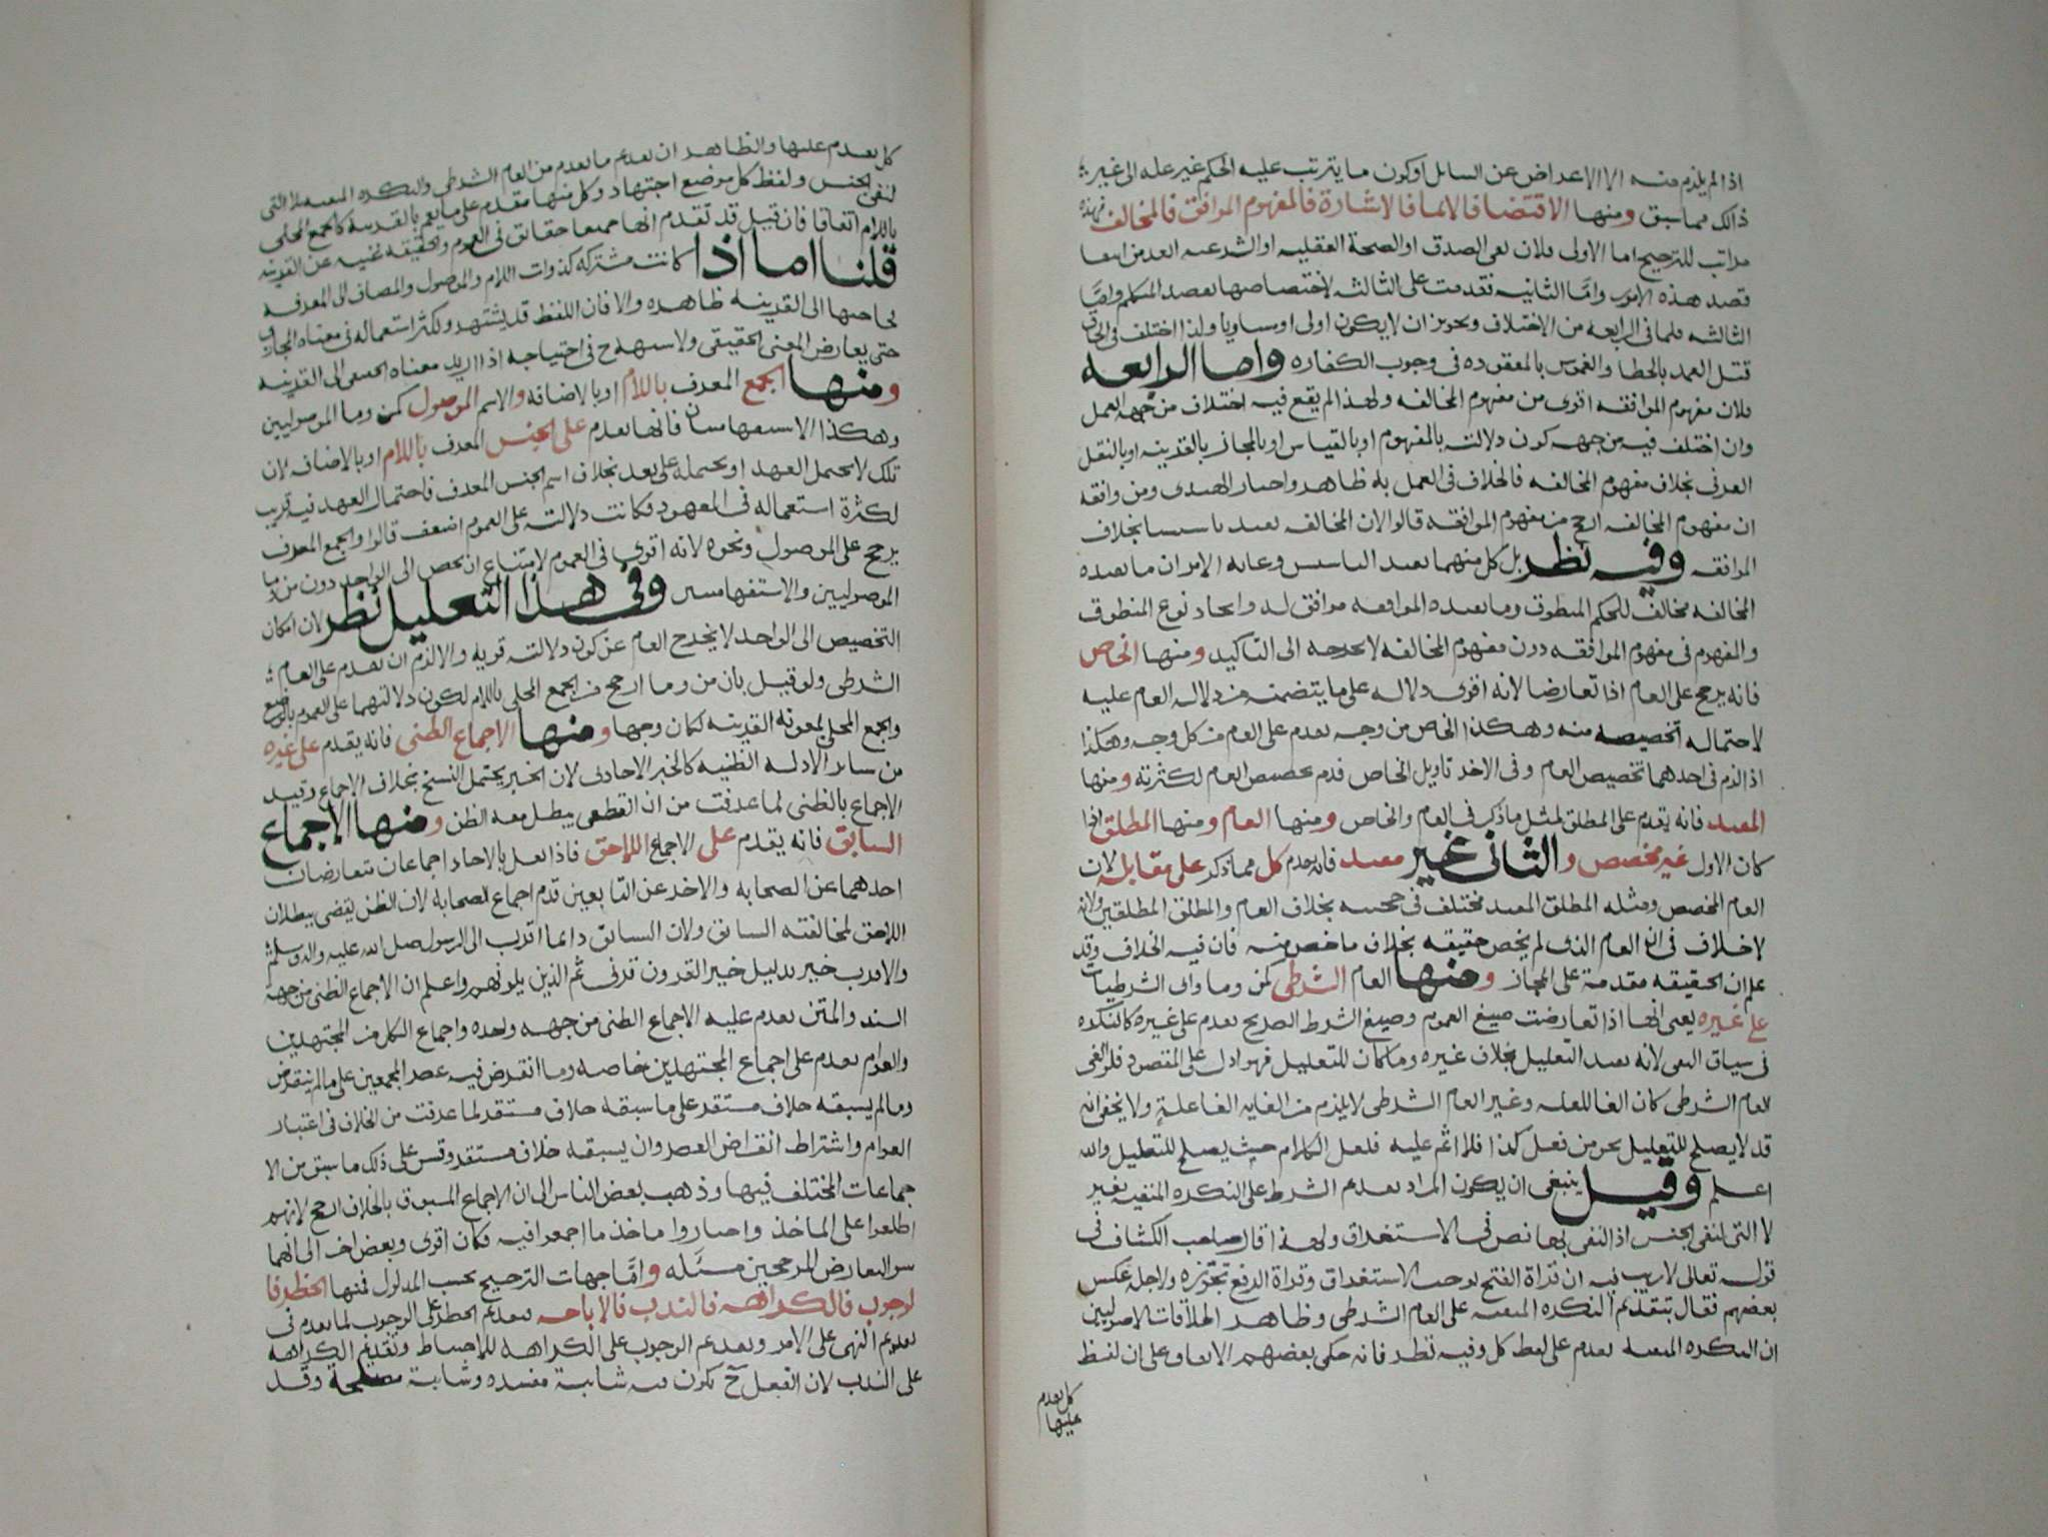 اذا لم يلزم منه الا الاعراض عن السايل او كون ما يترتب عليه الحكم غير عله الى غير
ذلك مما سبق ومنها الاقتضا فالايما فالاشارة فالمفهوم الموافق فالمخالف فهذه
مراتب للترجيح اما الاولى فلان نفى الصدق او الصحة العقليه او الشرعيه ابعد من انتفا
قصد هذه الامور واما الثانيه فتقدمت على الثالثه لاختصاصها بقصد المتكلم واما
الثالثه فلما فى الرابعه من الاختلاف وتجويز ان لا يكون اولى او مساويا ولذا اختلف فى الحاق
قتل العمد بالخطا والغموس بالمعقوده فى وجوب الكفاره واما الرابعه
فلان مفهوم الموافقه اقوى من مفهوم المخالفه ولهذا لم يقع فيه اختلاف من جهه العمل
وان اختلف فيه من جهه كون دلالته بالمفهوم او بالقياس او بالمجاز بالقرينه او بالنقل
العرفى بخلاف مفهوم المخالفه فالخلاف فى العمل به ظاهر واختار الهندى ومن وافقه
ان مفهوم المخالفه ارجح من مفهوم الموافقه قالوا لان المخالفه تفيد تاسيسا بخلاف
الموافقه وفيه نظر بل كل منهما يفيد التاسيس وغايه الامر ان ما تفيده
المخالفه مخالف للحكم المنطوق وما تفيده الموافقه موافق له واتحاد نوع المنطوق
والمفهوم فى مفهوم الموافقه دون مفهوم المخالفه لا يخرجه الى التاكيد ومنها الخاص
فانه يرجح على العام اذا تعارضا لانه اقوى دلاله على ما يتضمنه من دلاله العام عليه
لاحتماله تخصيصه منه وهكذا الخاص من وجه يقدم على العام من كل وجه وهكذا
اذا لزم فى احدهما تخصيص العام وفى الاخر تاويل الخاص قدم تخصيص العام لكثرته ومنها
المقيد فانه يقدم على المطلق لمثل ما ذكر فى العام والخاص ومنها العام ومنها المطلق اذا
كان الاول غير مخصص والثانى غير مقيد فانه يقدم كل مما ذكر على مقابله لان
العام المخصص ومثله المطلق المقيد مختلف فى حجيته بخلاف العام والمطلق المطلقين ولانه
لا خلاف فى ان العام الذى لم يخص حقيقه بخلاف ما خص منه فان فيه الخلاف وقد
علم ان الحقيقه مقدمة على المجاز ومنها العام الشرطى كمن وما واى الشرطيات
على غيره يعنى انها اذا تعارضت صيغ العموم وصيغ الشرط الصريح يقدم على غيره كالنكره
فى سياق النفى لانه يفيد التعليل بخلاف غيره وما كان للتعليل فهو ادل على المقصود فلو الغى
العام الشرطى كان الغا للعله وغير العام الشرطى لا يلزم من الغايه الغا علة ولا يخفى انه
قد لا يصلح للتعليل نحو من فعل كذا فلا اثم عليه فلعل الكلام حيث يصلح للتعليل والله
اعلم وقيل ينبغى ان يكون المراد تقديم الشرط على النكره المنفيه بغير
لا التى لنفى الجنس اذ النفى بها نص فى الاستغراق ولهذا قال صاحب الكشاف فى
قوله تعالى لا ريب فيه ان قراة الفتح توجب الاستغراق وقراة الرفع تجوزه ولاجله عكس
بعضهم فقال بتقديم النكره المنفيه على العام الشرطى وظاهر اطلاقات الاصوليين
ان النكره المنفيه تقدم على لفظ كل وفيه نظر فانه حكى بعضهم الاتفاق على ان لفظ
كل يقدم
عليها
كل يقدم عليها والظاهر ان تقديم ما تقدم من العام الشرطى والنكره المنفيه بلا التى
لنفى الجنس ولفظ كل موضع اجتهاد وكل منها مقدم على ما يعم بالقرينه كالجمع المحلى
باللام اتفاقا فان قيل قد تقدم انها جميعا حقائق فى العموم والحقيقه غنيه عن القرينه
قلنا اما اذا كانت مشتركه كذوات اللام والموصول والمضاف الى المعرفه
فحاجتها الى القرينه ظاهره والا فان اللفظ قد يشتهر ويكثر استعماله فى معناه المجازى
حتى يعارض المعنى الحقيقى ولا يستهجن فى احتياجه اذا اريد معناه الحقيقى الى القرينه
ومنها الجمع المعرف باللام او بالاضافه والاسم الموصول كمن وما الموصوليين
وهكذا الاستفهاميتان فانها تقدم على الجنس المعرف باللام او بالاضافه لان
تلك لا تحتمل العهد او تحتمله على بعد بخلاف اسم الجنس المعرف فاحتمال العهد فيه قريب
لكثرة استعماله فى المعهود فكانت دلالته على العموم اضعف قالوا والجمع المعرف
يرجح على الموصول ونحوه لانه اقوى فى العموم لامتناع ان يخص الى الواحد دون من وما
الموصوليين والاستفهاميتين وفى هذا التعليل نظر لان امكان
التخصيص الى الواحد لا يخرج العام عن كون دلالته قويه والا لزم ان يقدم على العام
الشرطى ولو قيل بان من وما ارجح من الجمع المحلى باللام لكون دلالتهما على العموم بالوضع
والجمع المحلى بمعونة القرينه لكان وجها ومنها الاجماع الظنى فانه يقدم على غيره
من ساير الادله الظنيه كالخبر الاحادى لان الخبر يحتمل النسخ بخلاف الاجماع وقيد
الاجماع بالظنى لما عرفت من ان القطعى يبطل معه الظن ومنها الاجماع
السابق فانه يقدم على الاجماع اللاحق فاذا نقل بالاحاد اجماعان متعارضان
احدهما عن الصحابه والاخر عن التابعين قدم اجماع الصحابه لان الظن يقضى ببطلان
اللاحق لمخالفته السابق ولان السابق دائما اقرب الى الرسول صلى الله عليه واله وسلم
والاقرب خير بدليل خير القرون قرنى ثم الذين يلونهم واعلم ان الاجماع الظنى من جهة
السند والمتن يقدم عليه الاجماع الظنى من جهه واحده واجماع الكل من المجتهدين
والعوام يقدم على اجماع المجتهدين خاصه وما انقرض فيه عصر المجمعين على ما لم ينقرض
وما لم يسبقه خلاف مستقر على ما سبقه خلاف مستقر لما عرفت من الخلاف فى اعتبار
العوام واشتراط انقراض العصر وان يسبقه خلاف مستقر وقس على ذلك ما سبق من الا
جماعات المختلف فيها وذهب بعض الناس الى ان الاجماع المسبوق بالخلاف ارجح لانهم
اطلعوا على الماخذ واختاروا ماخذ ما اجمعوا فيه فكان اقوى وبعض اخر الى انهما
سوا لتعارض المرجحين مسئله واما جهات الترجيح بحسب المدلول فمنها الحظر فا
لوجوب فالكراهه فالندب فالاباحه فيقدم الحظر على الوجوب لما تقدم فى
تقديم النهى على الامر وتقديم الوجوب على الكراهه للاحتياط وتقديم الكراهه
على الندب لان الفعل ح يكون فيه شائبة مفسده وشائبة مصلحة وقد